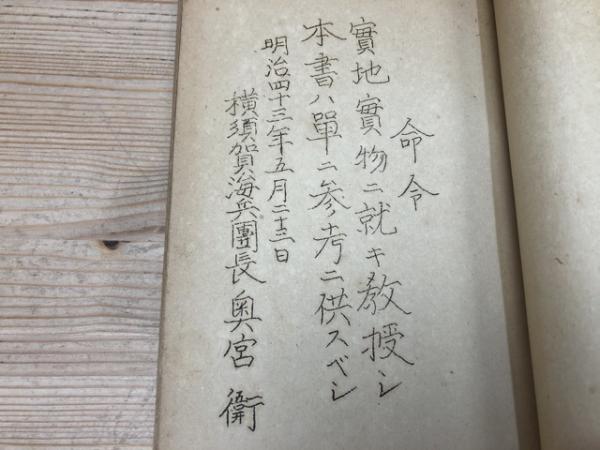 命令
實地實物ニ就キ教授シ
本書ハ單ニ參考ニ供スベシ
明治四十三年五月二十三日
橫須賀海兵團長奧宮衛